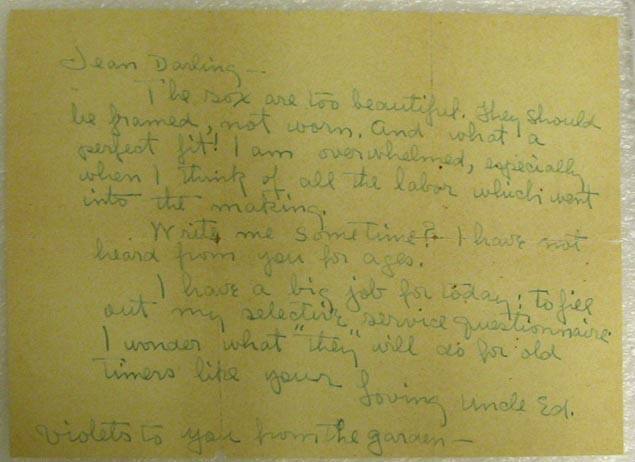 Jean Darling —
The sox are too beautiful. They should
be framed, not worn. And what a
perfect fit! I am overwhelmed, especially
when I think of all the labor which went
into the making.
Write me sometime? I have not
heard from you for ages.
I have a big job for today; to fill
out my selective service questionnaire
I wonder what "they" will do for old
timers like your Loving Uncle Ed.
Violets to you from the garden —